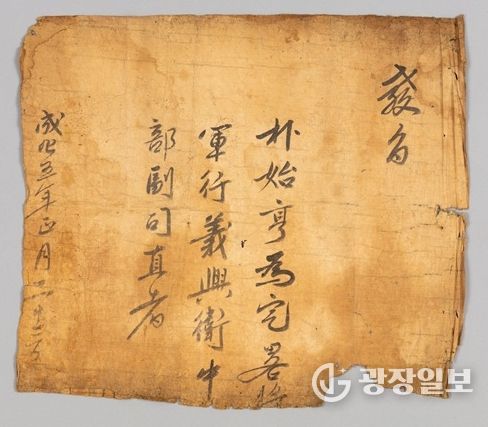 敎旨
朴始亨爲定畧將
軍行義興衛中
部副司直者
成化五年正月二十
광장일보